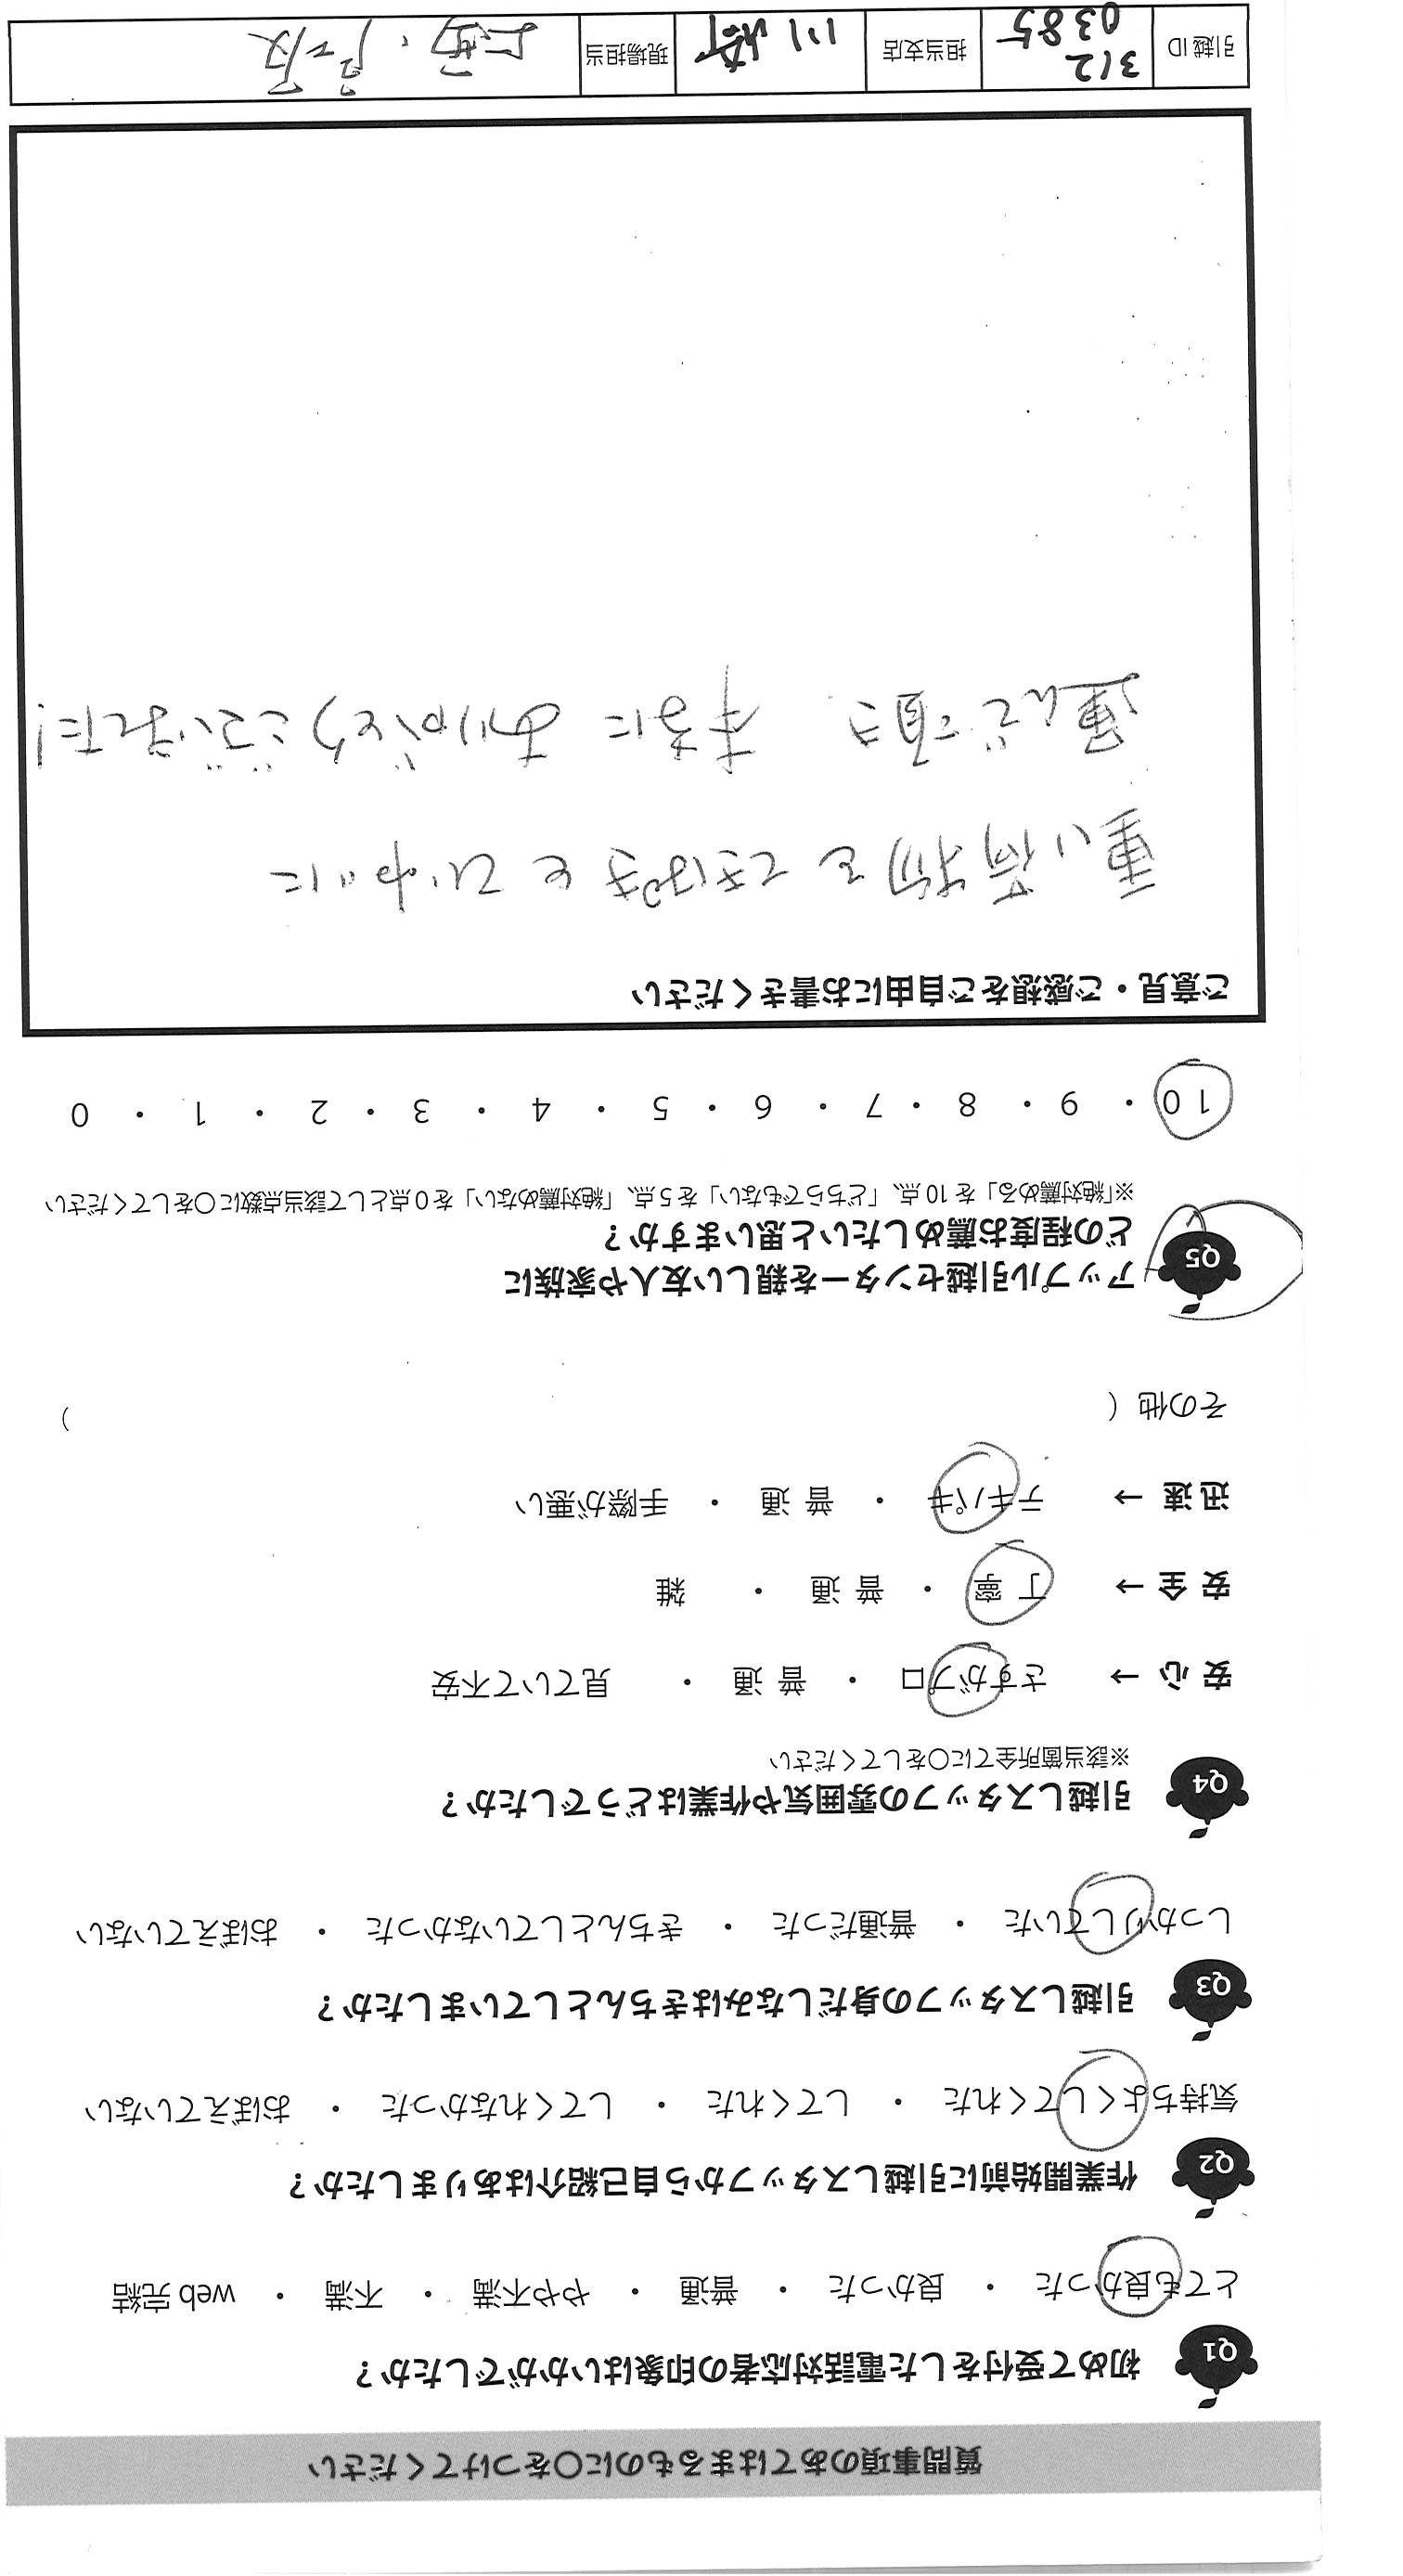 質問事項のあてはまるものに〇をつけてください
Q1 初めて受付をした電話対応者の印象はいかがでしたか？
とても良かった ・ 良かった ・ 普通 ・ やや不満 ・ 不満 ・ web 完結
Q2 作業開始前に引越しスタッフから自己紹介はありましたか？
気持ちよくしてくれた ・ してくれた ・ してくれなかった ・ おぼえていない
Q3 引越しスタッフの身だしなみはきちんとしていましたか？
しっかりしていた ・ 普通だった ・ きちんとしていなかった ・ おぼえていない
Q4 引越しスタッフの雰囲気や作業はどうでしたか？
※該当箇所全てに〇をしてください
安 心 → さすがプロ ・ 普 通 ・ 見ていて不安
安 全 → 丁 寧 ・ 普 通 ・ 雑
迅 速 → テキパキ ・ 普 通 ・ 手際が悪い
その他（ ）
Q5 アップル引越センターを親しい友人や家族に
どの程度お薦めしたいと思いますか？
※「絶対薦める」を 10 点、「どちらでもない」を 5 点、「絶対薦めない」を 0 点として該当点数に〇をしてください
10 ・ 9 ・ 8 ・ 7 ・ 6 ・ 5 ・ 4 ・ 3 ・ 2 ・ 1 ・ 0
ご意見・ご感想をご自由にお書きください
重い荷物を てきぱきと ていねいに
運んで頂き 本当に ありがとうございました！
引越 ID 312 0385 担当支店 川崎 現場担当